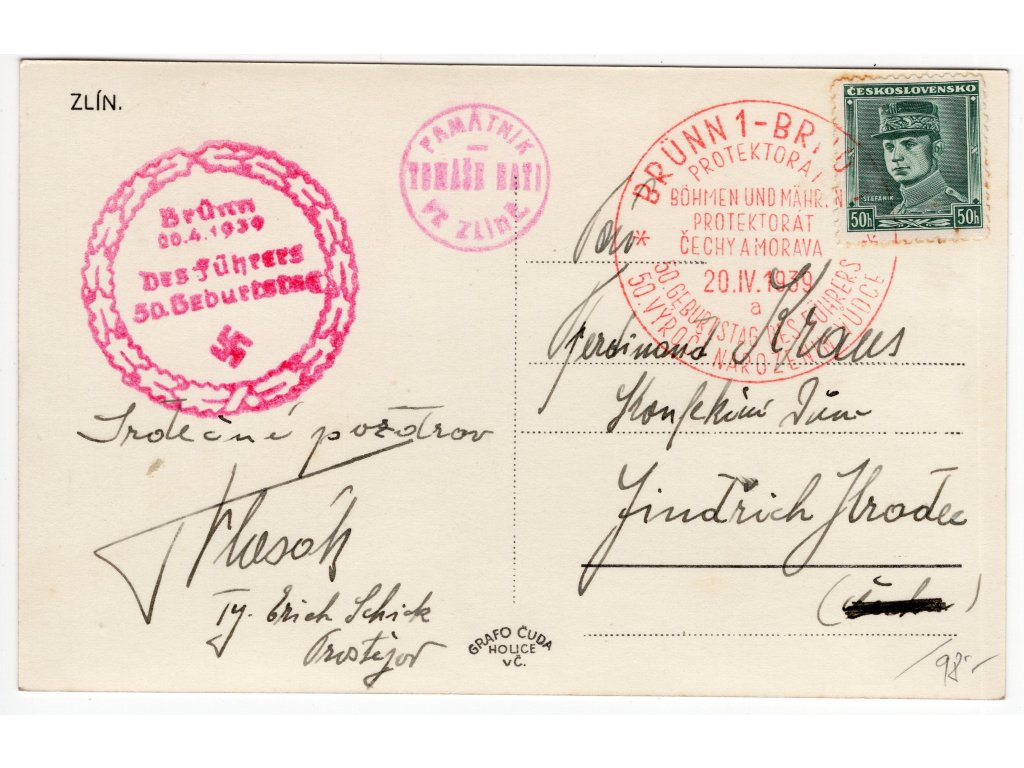 ZLÍN.
PAMÁTNÍK
TOMÁŠE BATI
VE ZLÍNĚ
BRÜNN 1 - BRNO
PROTEKTORAT
BÖHMEN UND MÄHREN
PROTEKTORÁT
ČECHY A MORAVA
20.IV.1939
a
50. GEBURTSTAG DES FÜHRERS
50. VÝROČÍ NAROZENÍ VŮDCE
ČESKOSLOVENSKO
ŠTEFÁNIK
50h 50h
Brünn
20.4.1939
Des Führers
50. Geburtstag
Pan
Ferdinand Kraus
Konfekční Dům
Jindřich Hradec
Srdečné pozdrav
Vlasák
Erich Schick
Prostějov
GRAFO ČUDA
HOLICE
V Č.
98